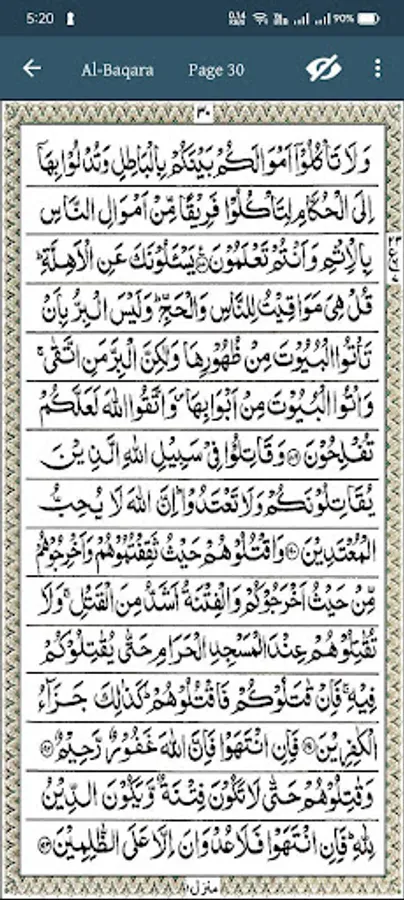 5:20 90%
Al-Baqara Page 30
٣٠
وَلَا تَأْكُلُوْٓا اَمْوَالَكُمْ بَيْنَكُمْ بِالْبَاطِلِ وَتُدْلُوْا بِهَآ
اِلَى الْحُكَّامِ لِتَاْكُلُوْا فَرِيْقًا مِّنْ اَمْوَالِ النَّاسِ
بِالْاِثْمِ وَاَنْتُمْ تَعْلَمُوْنَ ۝ يَسْـَٔلُوْنَكَ عَنِ الْاَهِلَّةِ ؕ
قُلْ هِىَ مَوَاقِيْتُ لِلنَّاسِ وَالْحَجِّ ؕ وَلَيْسَ الْبِرُّ بِاَنْ
تَاْتُوا الْبُيُوْتَ مِنْ ظُهُوْرِهَا وَلٰكِنَّ الْبِرَّ مَنِ اتَّقٰى ۚ
وَاْتُوا الْبُيُوْتَ مِنْ اَبْوَابِهَا ۪ وَاتَّقُوا اللّٰهَ لَعَلَّكُمْ
تُفْلِحُوْنَ ۝ وَقَاتِلُوْا فِىْ سَبِيْلِ اللّٰهِ الَّذِيْنَ
يُقَاتِلُوْنَكُمْ وَلَا تَعْتَدُوْا ؕ اِنَّ اللّٰهَ لَا يُحِبُّ
الْمُعْتَدِيْنَ ۝ وَاقْتُلُوْهُمْ حَيْثُ ثَقِفْتُمُوْهُمْ وَاَخْرِجُوْهُمْ
مِّنْ حَيْثُ اَخْرَجُوْكُمْ وَالْفِتْنَةُ اَشَدُّ مِنَ الْقَتْلِ ۚ وَلَا
تُقٰتِلُوْهُمْ عِنْدَ الْمَسْجِدِ الْحَرَامِ حَتّٰى يُقٰتِلُوْكُمْ
فِيْهِ ۚ فَاِنْ قٰتَلُوْكُمْ فَاقْتُلُوْهُمْ ؕ كَذٰلِكَ جَزَآءُ
الْكٰفِرِيْنَ ۝ فَاِنِ انْتَهَوْا فَاِنَّ اللّٰهَ غَفُوْرٌ رَّحِيْمٌ ۝
وَقٰتِلُوْهُمْ حَتّٰى لَا تَكُوْنَ فِتْنَةٌ وَّيَكُوْنَ الدِّيْنُ
لِلّٰهِ ؕ فَاِنِ انْتَهَوْا فَلَا عُدْوَانَ اِلَّا عَلَى الظّٰلِمِيْنَ ۝
منزل ١